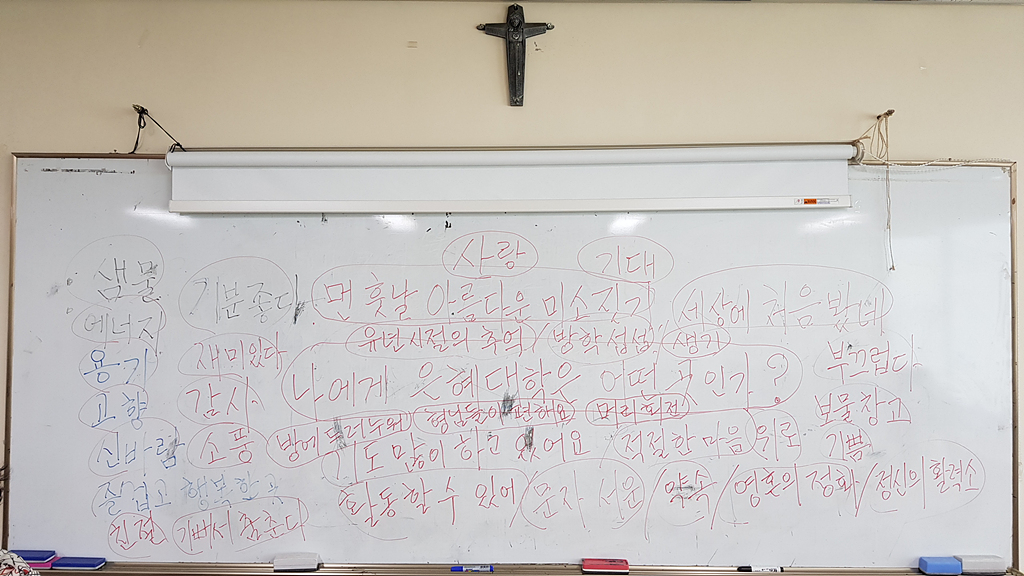 사랑 기대
샘물 기분좋다 먼 훗날 아름다운 미소짓기 세상에 처음 봤네
에너지 유년시절의 추억 / 방학 섭섭 / 생기
용기 재미있다 나에게 은혜대학은 어떤 곳인가? 부끄럽다
고향 감사 방에 둘러누워 형님들이 편해요 머리 회전 보물창고
신바람 소풍 기도 많이 하고 있어요 적절한 마음 위로 기쁨
즐겁고 행복하고 활동할 수 있어 문자 서운 / 약속 / 영혼의 정화 / 정신의 활력소
친절 기뻐서 춤춘다